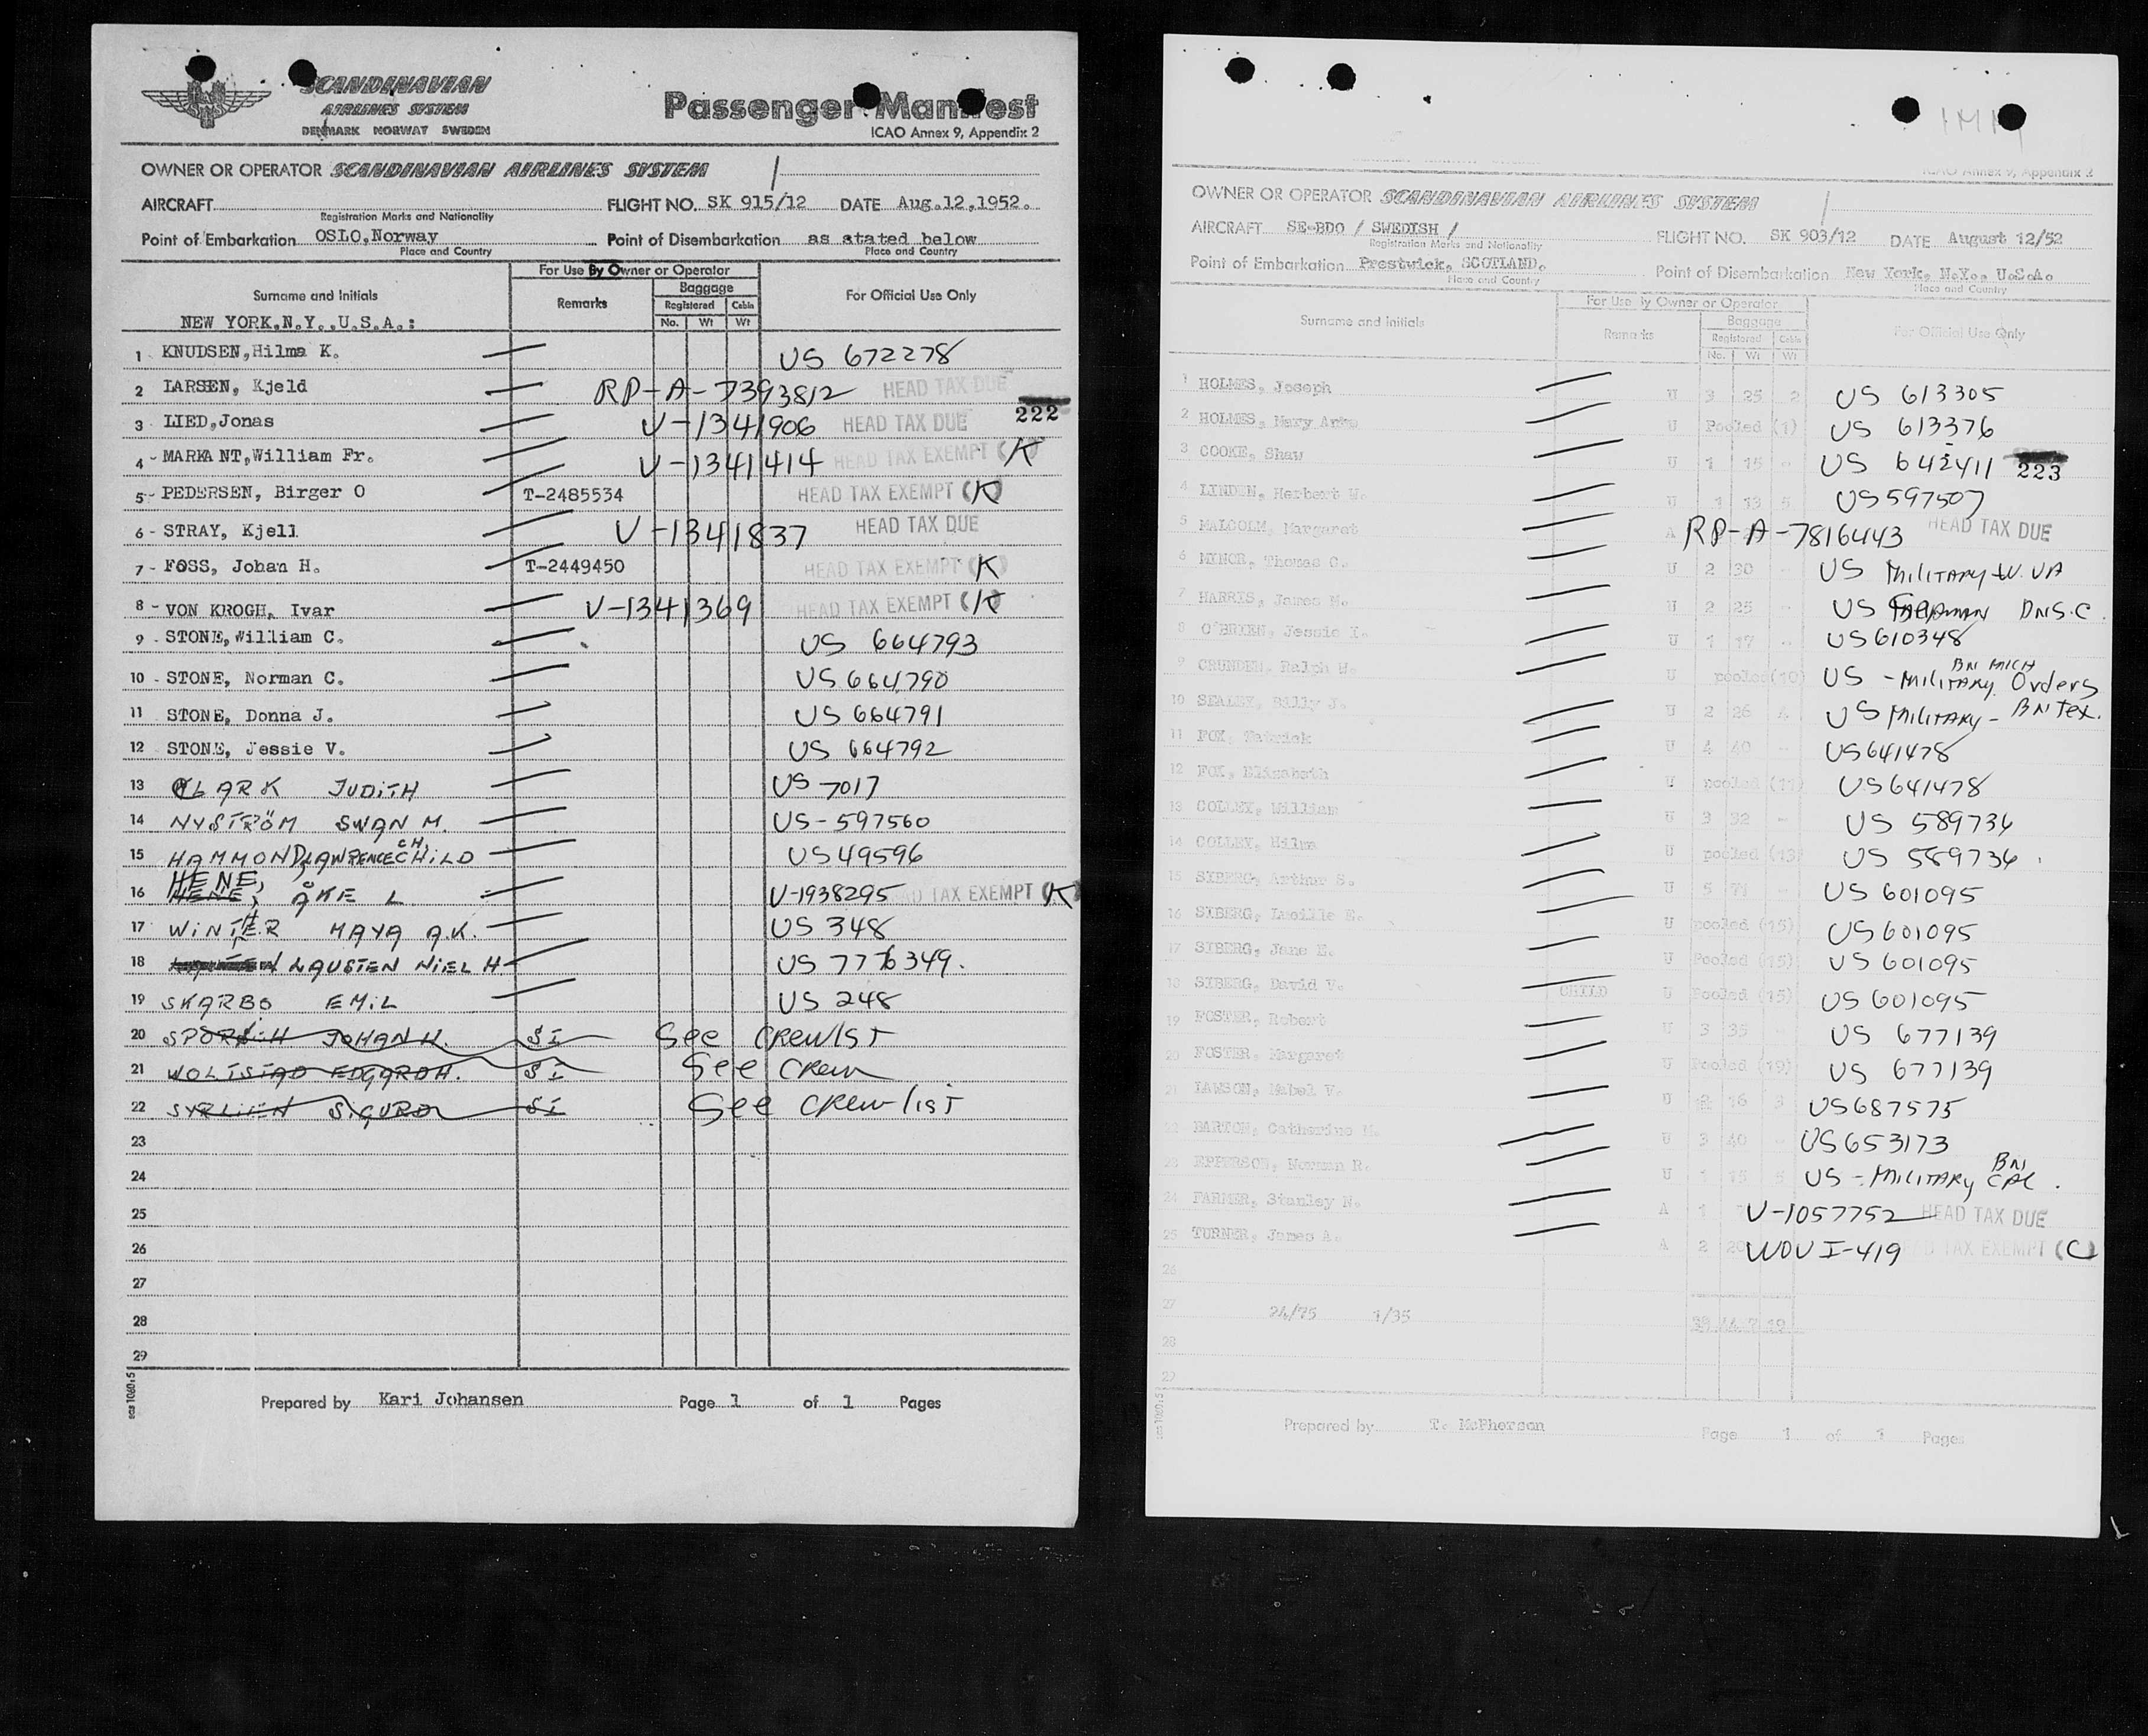 SCANDINAVIAN
AIRLINES SYSTEM
DENMARK NORWAY SWEDEN
Passenger Manifest
ICAO Annex 9, Appendix 2
OWNER OR OPERATOR SCANDINAVIAN AIRLINES SYSTEM
AIRCRAFT FLIGHT NO. SK 915/12 DATE Aug.12,1952.
Registration Marks and Nationality
Point of Embarkation OSLO,Norway Point of Disembarkation as stated below
Place and Country Place and Country
For Use By Owner or Operator
Surname and Initials Remarks Baggage For Official Use Only
Registered Cabin
No. Wt Wt
NEW YORK.N.Y.,U.S.A.:
1 KNUDSEN,Hilma K. US 672278
2 LARSEN, Kjeld RP-A-7393812 HEAD TAX DUE
222
3 LIED,Jonas V-1341906 HEAD TAX DUE
4 MARKANT,William Fr. V-1341414 HEAD TAX EXEMPT (K)
5 PEDERSEN, Birger O T-2485534 HEAD TAX EXEMPT (K)
6 STRAY, Kjell V-1341837 HEAD TAX DUE
7 FOSS, Johan H. T-2449450 HEAD TAX EXEMPT (K)
8 VON KROGH, Ivar V-1341369 HEAD TAX EXEMPT (K)
9 STONE,William C. US 664793
10 STONE, Norman C. US 664790
11 STONE, Donna J. US 664791
12 STONE, Jessie V. US 664792
13 CLARK JUDITH US 7017
14 NYSTRÖM SWAN M. US-597560
15 HAMMOND, LAWRENCE CH. CHILD US 49596
16 HENE, HENE, ÅKE L V-1938295 HEAD TAX EXEMPT (K)
17 WINTER MAYA A.K. US 348
18 LAUSTEN NIEL H US 776349.
19 SKARBO EMIL US 248
20 JOHAN H. SI See Crewlst
21 WOLTSTAD EDGARDH. SI See Crew
22 SIGURD SI See Crew list
23
24
25
26
27
28
29
sas 1060:5
Prepared by Kari Johansen Page 1 of 1 Pages
ICAO Annex 9, Appendix 2
OWNER OR OPERATOR SCANDINAVIAN AIRLINES SYSTEM
AIRCRAFT SE-BDO / SWEDISH / FLIGHT NO. SK 903/12 DATE August 12/52
Registration Marks and Nationality
Point of Embarkation Prestwick, SCOTLAND. Point of Disembarkation New York, N.Y., U.S.A.
Place and Country Place and Country
For Use By Owner or Operator
Surname and Initials Remarks Baggage For Official Use Only
Registered Cabin
No. Wt Wt
1 HOLMES, Joseph U 3 25 2 US 613305
2 HOLMES, Mary U Pooled (1) US 613376
3 COOKE, Shaw U 1 15 - US 642411
223
4 LINDEN, Herbert W. U 1 13 5 US 597507
5 MALCOLM, Margaret A RP-A-7816443 HEAD TAX DUE
6 MINOR, Thomas C. U 2 30 - US Military W. VA
7 HARRIS, James M. U 2 25 - US
8 O'BRIEN, Jessie I. U 1 17 - US 610348
9 CRUNDEN, Ralph W. U pooled(10) US - Military Orders BN MICH
10 SEALEY, Billy J. U 2 26 4 US Military - BN Tex.
11 FOX, Patrick U 4 40 - US 641478
12 FOX, Elizabeth U pooled (11) US 641478
13 COLLEY, William U 3 32 - US 589736
14 COLLEY, Hilma U pooled (13) US 589736
15 SIBERG, Arthur S. U 5 71 - US 601095
16 SIBERG, Lucille E. U pooled (15) US 601095
17 SIBERG, Jane E. U Pooled (15) US 601095
18 SIBERG, David V. CHILD U Pooled (15) US 601095
19 FOSTER, Robert U 3 35 US 677139
20 FOSTER, Margaret U Pooled (19) US 677139
21 LAWSON, Mabel V. U 2 16 3 US 687575
22 BARTON, Catherine M. U 3 40 - US 653173
23 EPPERSON, Norman R. U 1 15 5 US - Military BN CAL.
24 FARMER, Stanley N. A 1 V-1057752 HEAD TAX DUE
25 TURNER, James A. A 2 20 WOV I-419 HEAD TAX EXEMPT (C)
26
27 24/75 1/35
28
29
Prepared by T. McPherson Page 1 of 1 Pages